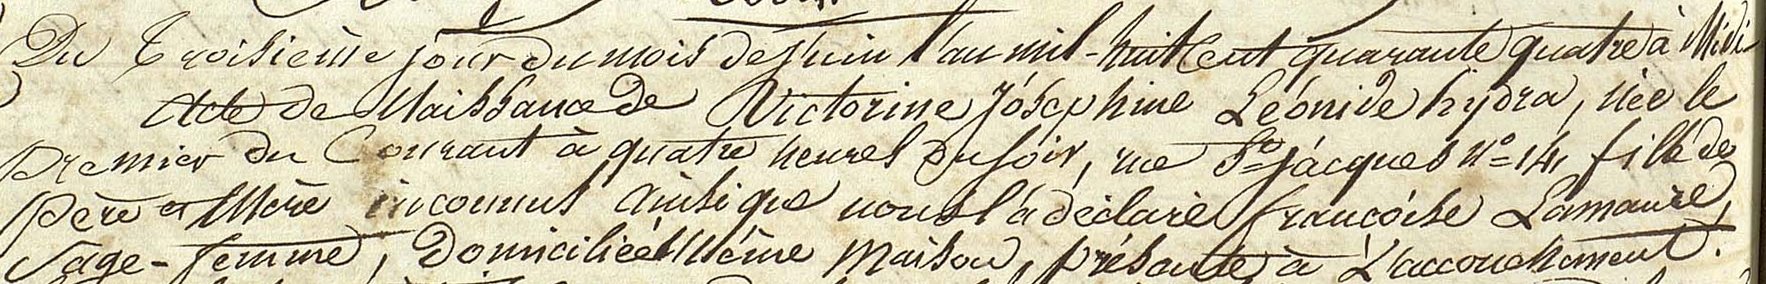 Du troisième jour du mois de Juin l'an mil-huit Cent quarante quatre à Midi
Acte de Naissance de Victorine Joséphine Léonide hydra, née le
premier du Courant à quatre heures du soir, rue St Jacques n° 14, fille de
père et Mère inconnus ainsi que nous l'a déclaré françoise Lamaure,
Sage-femme, Domiciliée Même Maison, présente à L'accouchement.